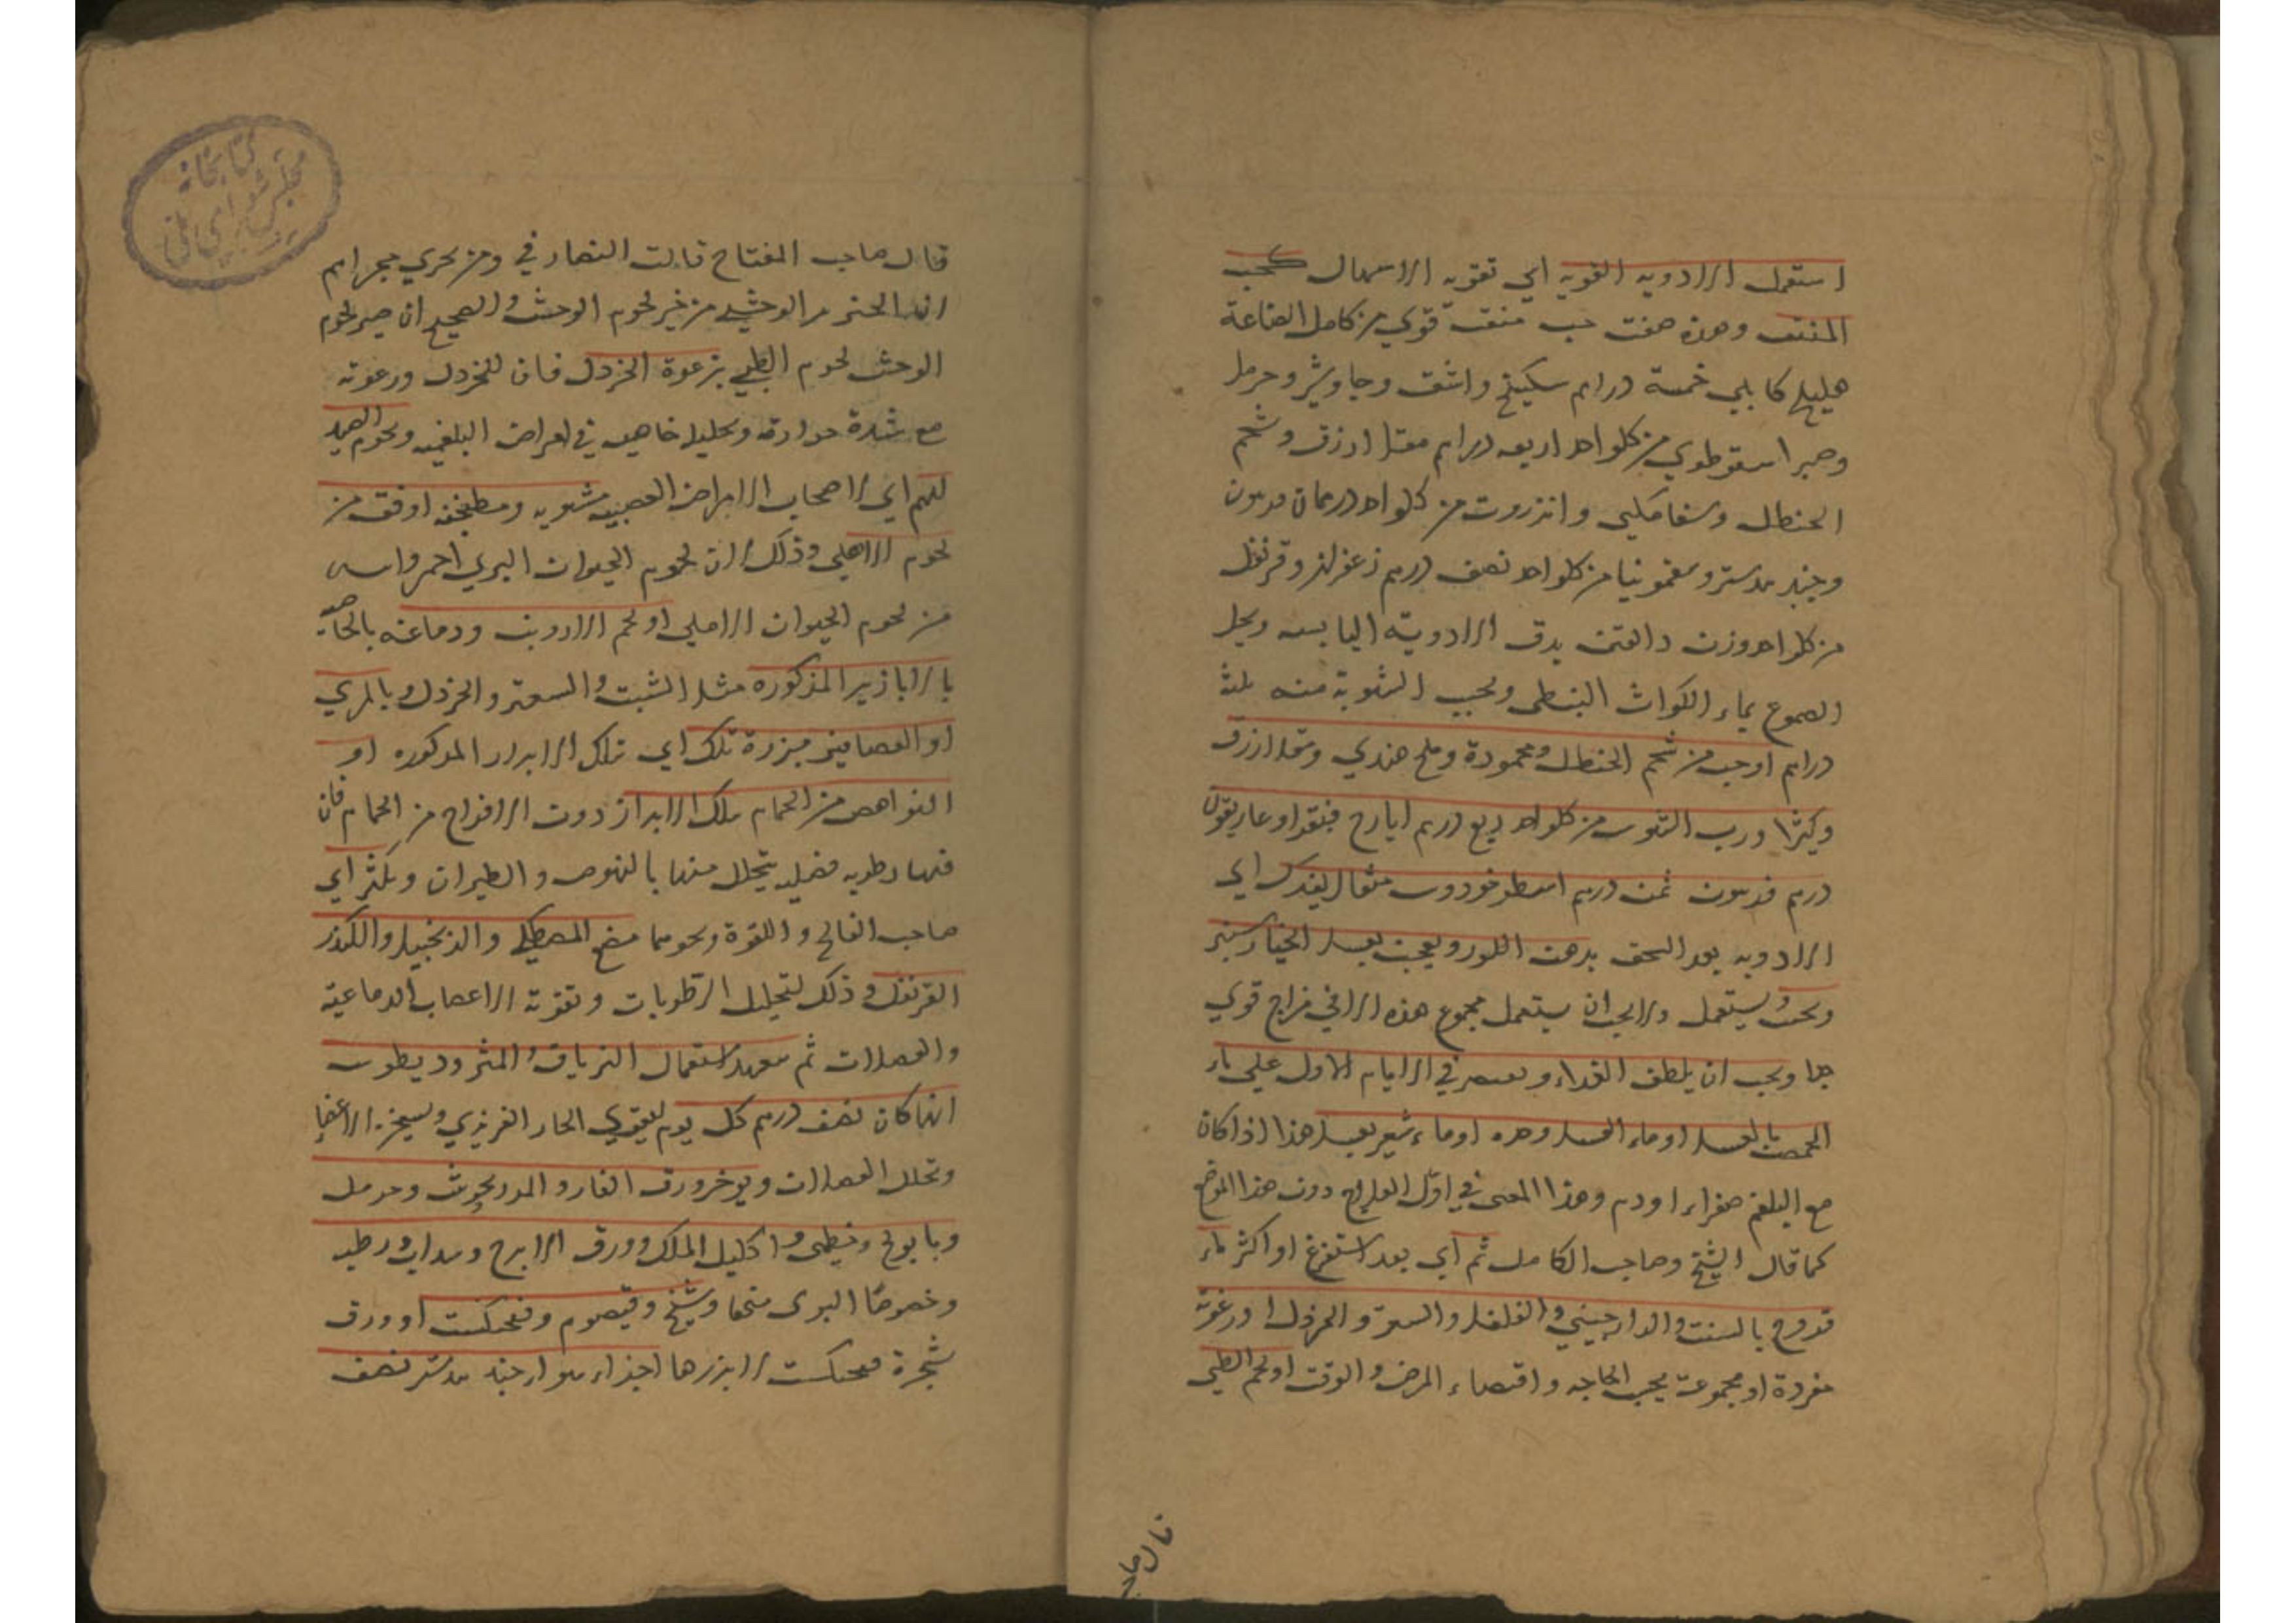 استعمل الادويه القويه اي تقويه الاسهال كحب
المنتن وهذه صفت حب منتن قوي من كامل الصناعة
هليلج كابلي خمسة دراهم سكبينج واشق وجاوشير وحرمل
وصبر اسقوطري من كلواحد اربعه دراهم مقل ازرق وشحم
الحنظل وانزروت من كلواحد درهمان فربيون
وجند بيدستر وسقمونيا من كلواحد نصف درهم زعفران وقرنفل
من كلواحد وزن دانقين يدق الادوية اليابسه ويحل
الصموغ بماء الكراث النبطى ويحبب الشربة منه ثلثة
دراهم اوحب من شحم الحنظل ومحمودة وملح هندي ومقل ازرق
وكثيرا ورب السوس من كلواحد ربع درهم ايارج فيقرا وغاريقون
درهم فربيون ثمن درهم اسطوخودوس مثقال يفرك اي
الادويه بعد السحق بدهن اللوز ويعجن بعسل الخيارشنبر
ويحبب ويستعمل ولا يجب ان يستعمل مجموع هذه الا في مزاج قوي
جدا ويجب ان يلطف الغذاء ويقتصر في الايام الاول علي ماء
الحمص بالعسل او ماء العسل وحده او ماء شعير بعسل هذا اذا كان
مع البلغم صفراء او دم وهذا المعنى في اول العلاج دون هذا الموضع
كما قال الشيخ وصاحب الكامل ثم اي بعد استفرغ او اكثر ماء
بالشبت والدارجيني والفلفل والسعتر والخردل او رغوته
مفردة او مجموعة بحسب الحاجه واقتضاء المرض والوقت او لحم الظبي
قال صاحب
قال صاحب المفتاح قالت النصاري ومن يجري مجراهم
ان الخنزير الوحشي من خير لحوم الوحش والصحيح ان خير لحوم
الوحش لحوم الظبي برغوة الخردل فان للخردل ورغوته
مع شدة حرارته وتحليله خاصيه في امراض البلغميه ولحوم الصيد
لهم اي لاصحاب الامراض العصبيه مشويه ومطبخنه اوفق من
لحوم الاهلي وذلك لان لحوم الحيوان البري احمر وايبس
من لحوم الحيوان الاهلي او لحم الارنب ودماغه بالخاصيه
بالابازير المذكوره مثل الشبت والسعتر والخردل وبالمري
او العصافير مبزرة تلك اي تلك الابزار المذكوره او
النواهض من الحمام بتلك الابزار دون الافراخ من الحمام فان
فيها رطوبه فضليه يتحلل منها بالنهوض والطيران ويكثر اي
صاحب الفالج واللقوة ونحوهما مضغ المصطكي والزنجبيل والكندر
القرنفل وذلك لتحليل الرطوبات وتقوية الاعصاب الدماغية
والعضلات ثم استعمال الترياق والمثروديطوس
ايهما كان نصف درهم كل يوم ليقوي الحار الغريزي ويسخن الاعضاء
وتحلل الفضلات ويوخذ ورق الغار والمرزنجوش وحرمل
وبابونج وخطمى واكليل الملك وورق الاترج وسداب رطب
وخصوصا البرى منهما وشيح وقيصوم وفنجنكشت او ورق
شجرة فنجنكشت لا بزرها اجزاء سواء جند بيدستر نصف
كتابخانه
مجلس شوراي ملي